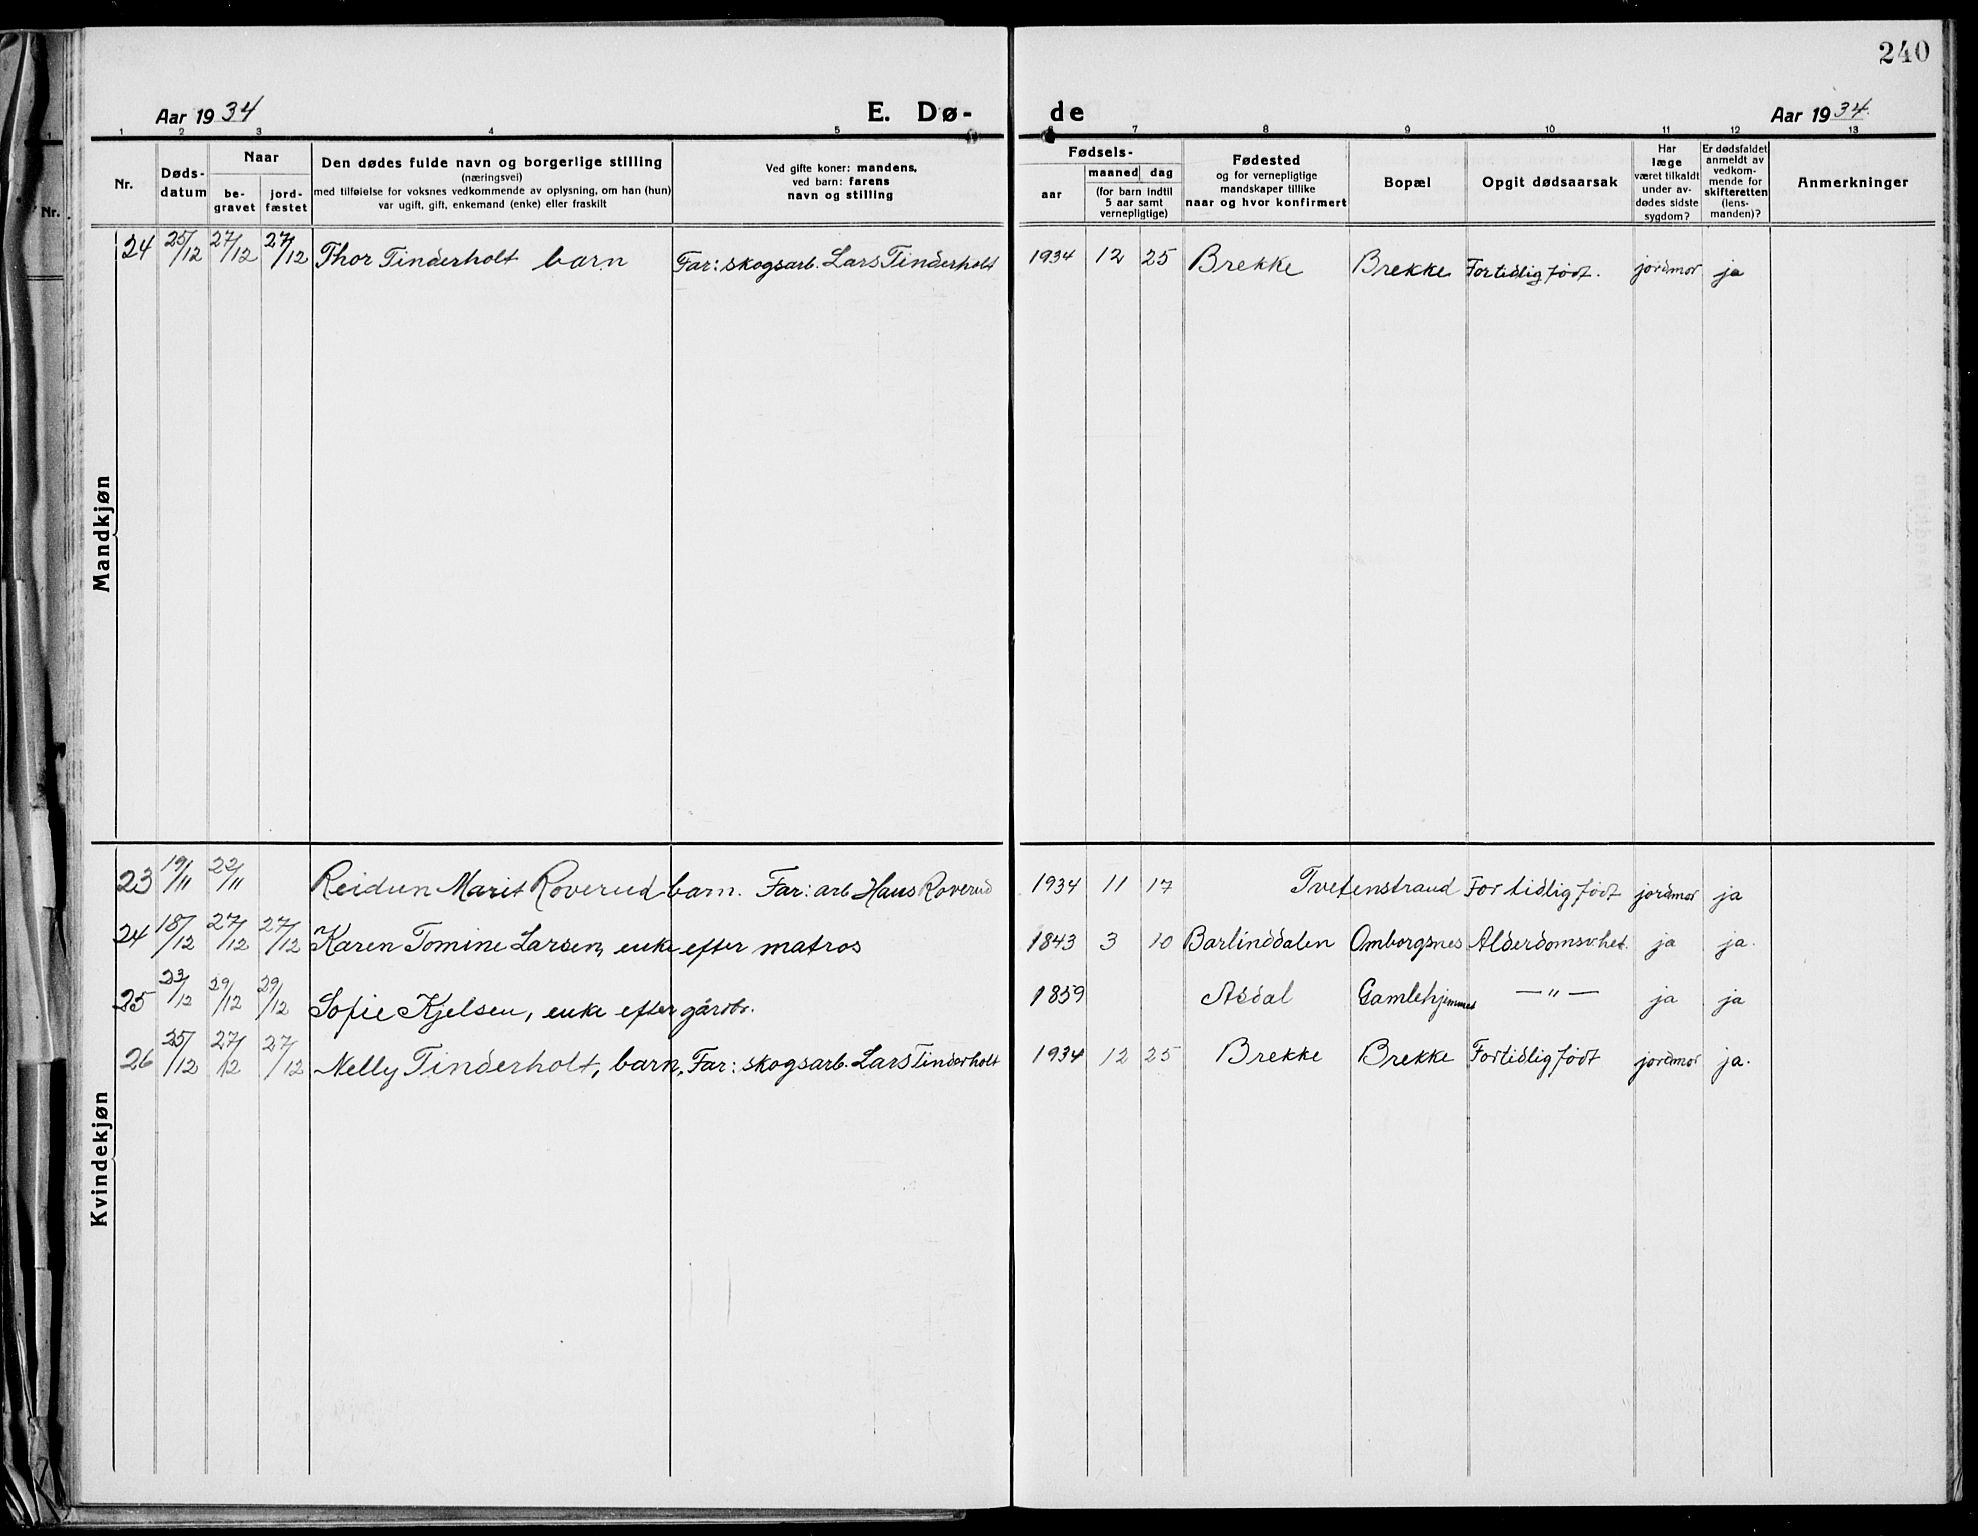 240
Aar 1934
E. Dø-
de
Aar 1934.
1 2 3 4 5 6 7 8 9 10 11 12 13
Nr.
Døds-
datum
Naar
be-
gravet
jord-
fæstet
Den dødes fulde navn og borgerlige stilling
(næringsvei)
med tilføielse for voksnes vedkommende av oplysning, om han (hun)
var ugift, gift, enkemand (enke) eller fraskilt
Ved gifte koner: mandens,
ved barn: farens
navn og stilling
Fødsels-
aar
maaned dag
(for barn indtil
5 aar samt
vernepligtige)
Fødested
og for vernepligtige
mandskaper tillike
naar og hvor konfirmert
Bopæl
Opgit dødsaarsak
Har
læge
været tilkaldt
under av-
dødes sidste
sygdom?
Er dødsfaldet
anmeldt av
vedkom-
mende for
skifteretten
(lens-
manden)?
Anmerkninger
1
Nr.
Mandkjøn
24 25/12 27/12 27/12 Thor Tinderholt barn Far: skogsarb. Lars Tinderholt 1934 12 25 Brekke Brekke For tidlig født. jordmor ja
Kvindekjøn
23 19/11 22/11 Reidun Marit Roverud barn. Far: arb Hans Roverud 1934 11 17 Tvetenstrand For tidlig født jordmor ja
24 18/12 27/12 27/12 Karen Tomine Larsen, enke efter matros 1843 3 10 Barlinddalen Omborgsnes Alderdomsvhet. ja ja.
25 23/12 29/12 29/12 Sofie Kjelsen, enke efter gårdbr. 1859 Asdal Gamlehjemmet —"— ja ja
26 25/12 27/12 27/12 Nelly Tinderholt, barn, Far: skogsarb. Lars Tinderholt 1934 12 25 Brekke Brekke For tidlig født jordmor ja.